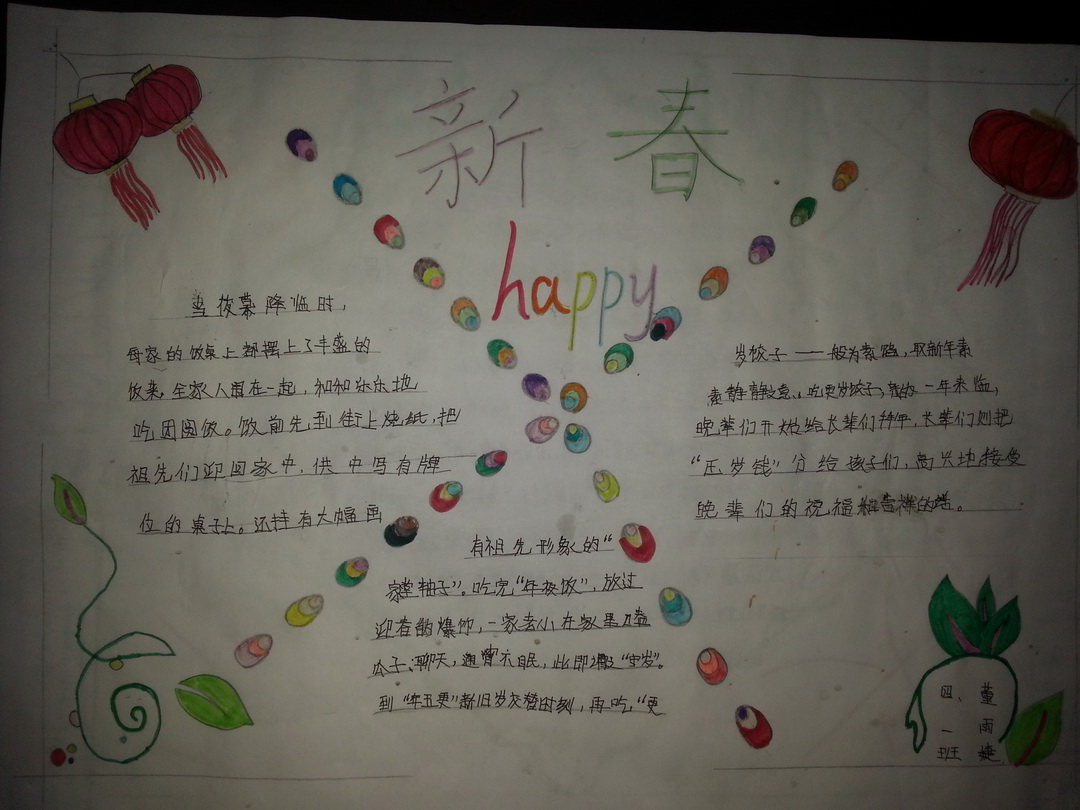 新春
happy
当夜幕降临时，
每家的饭桌上都摆上了丰盛的
饭菜，全家人围在一起，和和乐乐地
吃团圆饭。饭前先到街上烧纸，把
祖先们迎回家中，供中写有牌
位的桌子上。还持有大幅画
有祖先形象的“
家堂轴子”。吃完“年夜饭”，放过
迎春的爆竹，一家老小在家里嗑
瓜子、聊天，通宵不眠，此即“守岁”。
到“年五更”新旧岁交替时刻，再吃“更
岁饺子——一般为素馅，取新年素
素静静之意。吃更岁饺子，一年来临，
晚辈们开始给长辈们拜年，长辈们则把
“压岁钱”分给孩子们，高兴地接受
晚辈们的祝福和
四、一班
董雨婕